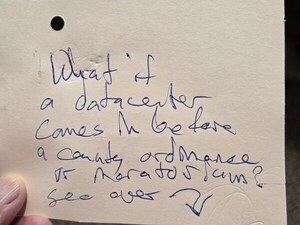 What if
a datacenter
comes in before
a county ordinance
or moratorium?
see over